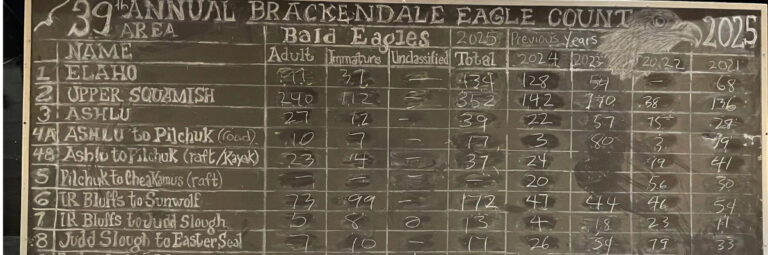 39th ANNUAL BRACKENDALE EAGLE COUNT 2025
AREA Bald Eagles 2025 Previous Years
NAME Adult Immature Unclassified Total 2024 2023 2022 2021
1 ELAHO 37 - 434 128 54 - 68
2 UPPER SQUAMISH 240 112 - 352 142 170 38 136
3 ASHLU 27 12 - 39 22 57 75 29
4A ASHLU to Pilchuk (road) 10 7 - 17 3 80 3
4B Ashlu to Pilchuk (raft/Kayak) 23 4 - 37 24 19 41
5 Pilchuk to Cheakamus (raft) - - - - 20 56 50
6 IR Bluffs to Sunwolf 73 99 - 172 47 44 46 54
7 IR Bluffs to Judd Slough 5 8 0 13 4 18 23 11
8 Judd Slough to Easter Seal 7 10 - 17 26 54 79 33